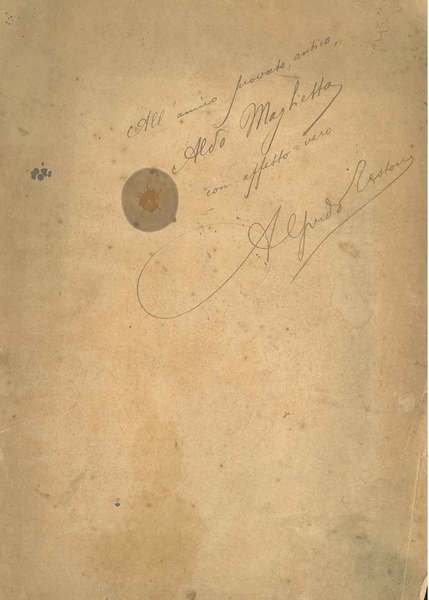 All' amico provato, antico,
Aldo Maghetta
con affetto vero
Alfredo